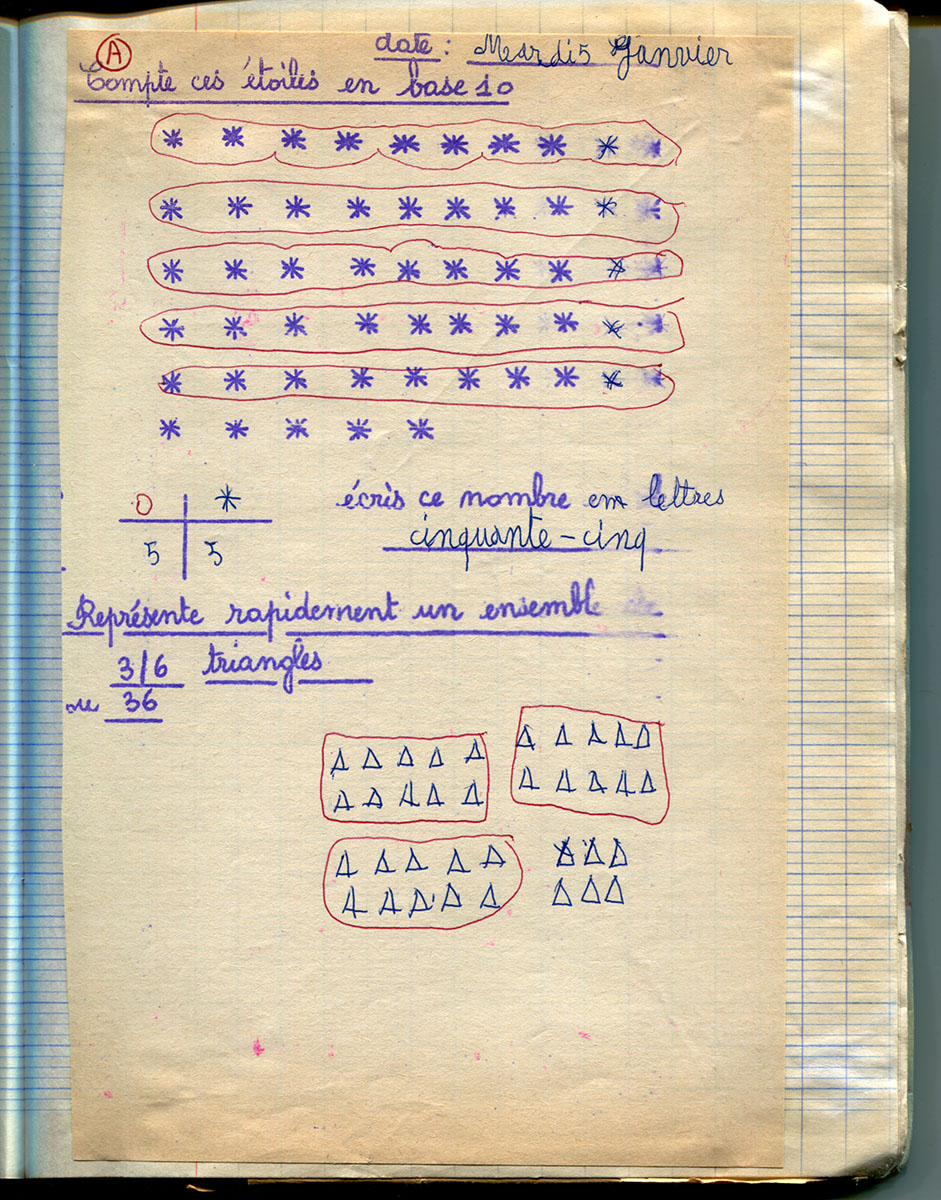 A date : Mardi 5 Janvier
Compte ces étoiles en base 10
O *
5 5
écris ce nombre en lettres
cinquante-cinq
Représente rapidement un ensemble de
3/6 triangles
ou 36